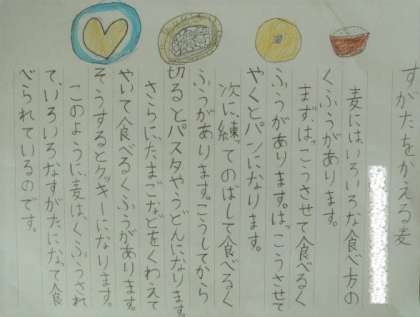 すがたをかえる麦
麦にはいろいろな食べ方の
くふうがあります。
まず、はっこうさせて食べるく
ふうがあります。はっこうさせて
やくとパンになります。
次に、練ってのばして食べるく
ふうがあります。こうしてから
切るとパスタやうどんになります。
さらに、たまごなどをくわえて
やいて食べるくふうがあります。
そうするとクッキーになります。
このように麦は、くふうされ
て、いろいろなすがたになって食
べられているのです。